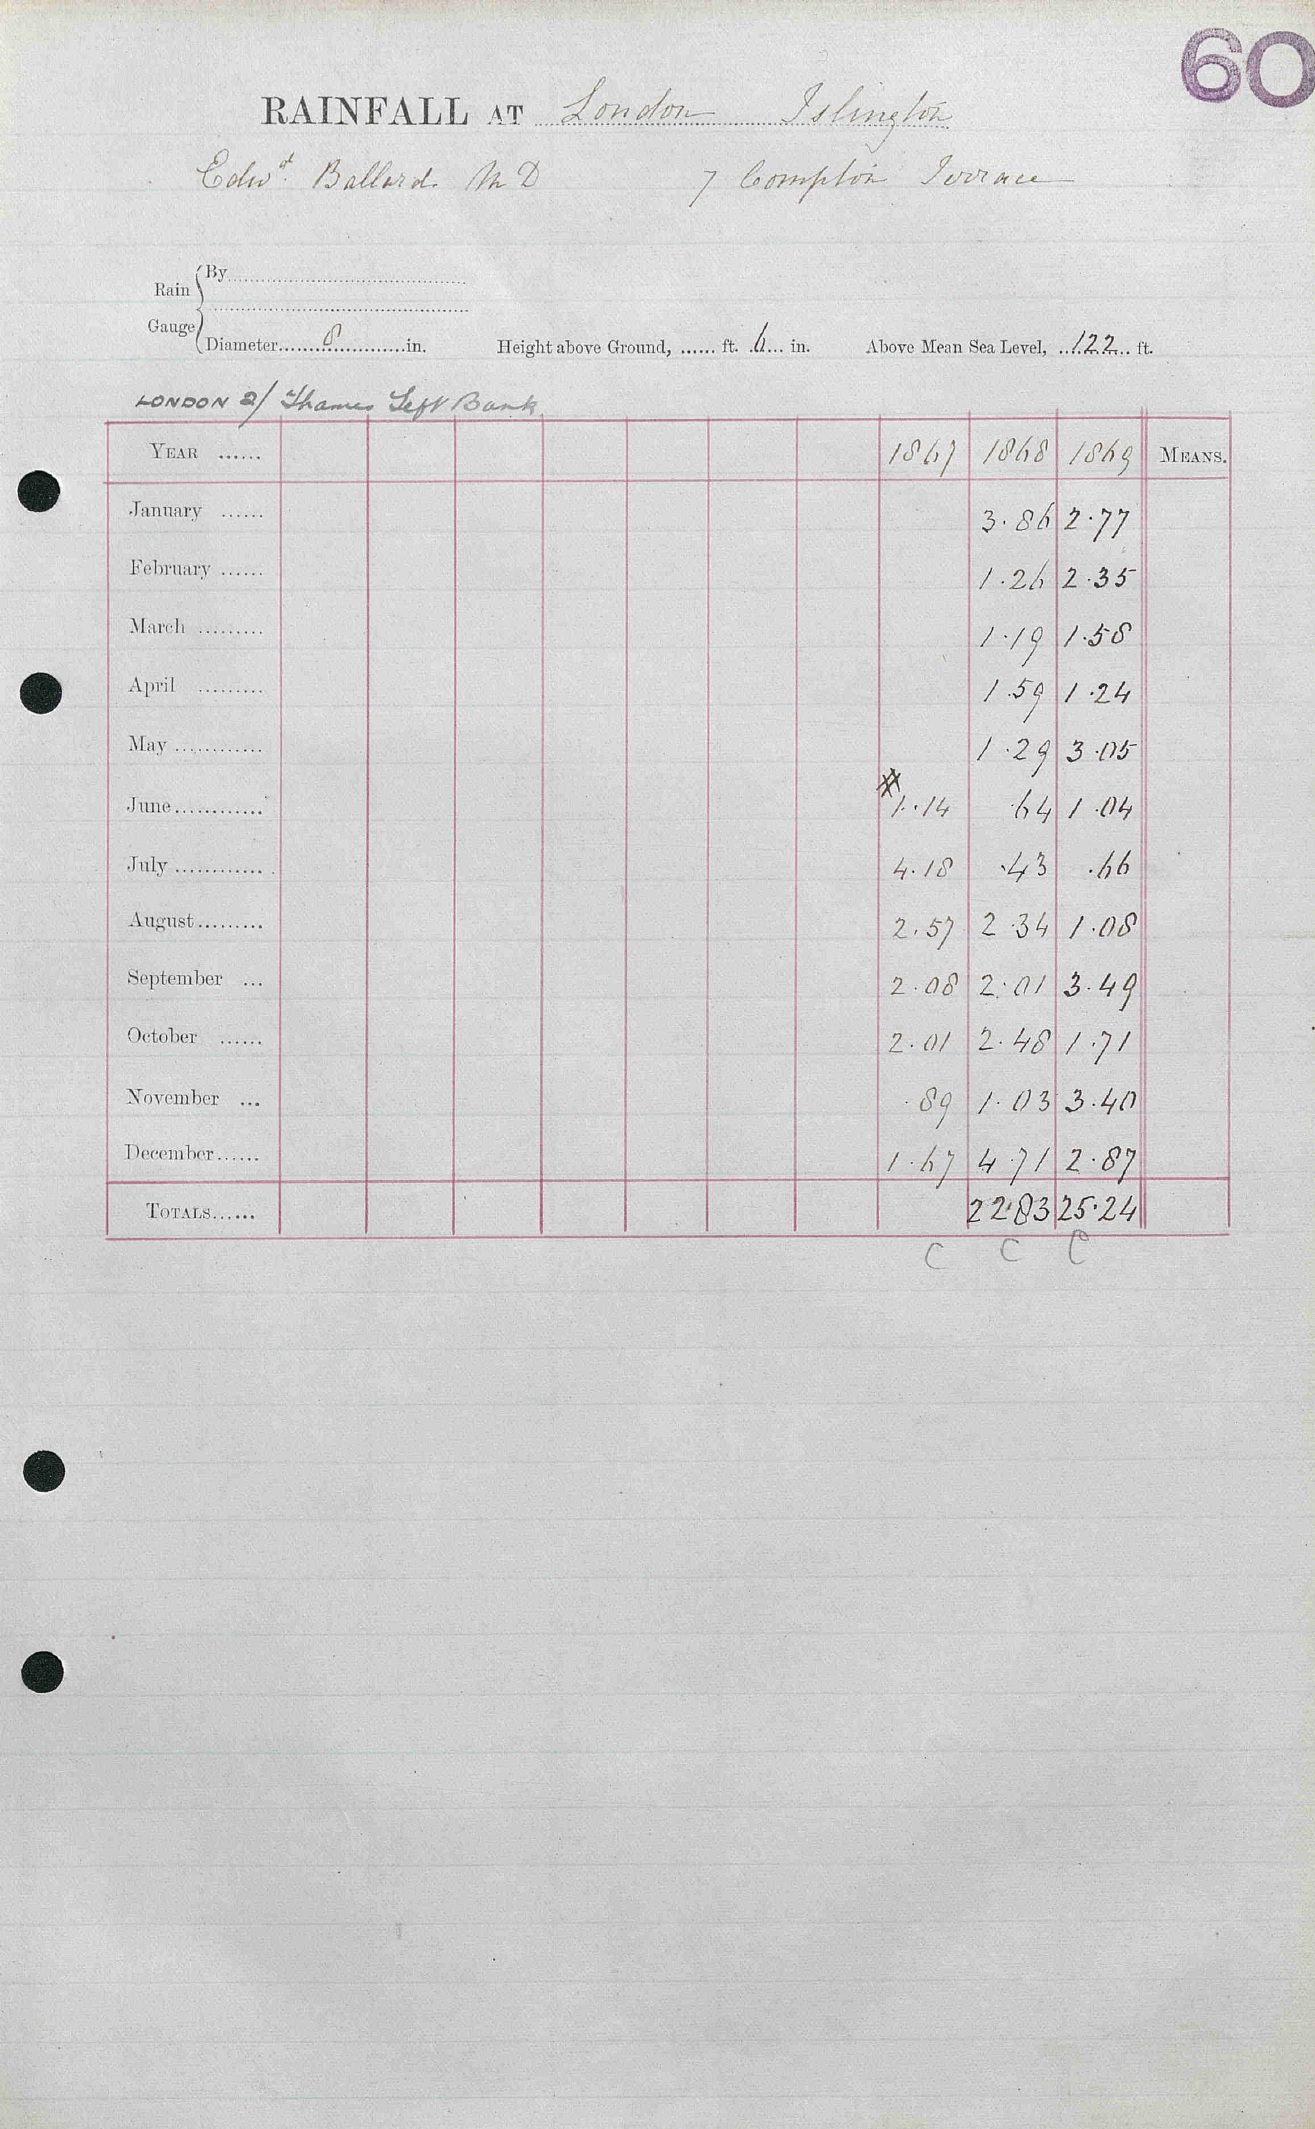 60
RAINFALL AT London Islington
Edwd. Ballard M D 7 Compton Terrace
Rain Gauge { By
Diameter 8 in. Height above Ground, ...... ft. 6 in. Above Mean Sea Level, 122 ft.
LONDON 2/ Thames Left Bank
YEAR ...... 1867 1868 1869 MEANS.
January ...... 3.86 2.77
February ...... 1.26 2.35
March ......... 1.19 1.58
April ......... 1.59 1.24
May ............ 1.29 3.05
June ............ # 1.14 .64 1.04
July ............ 4.18 .43 .66
August ......... 2.57 2.34 1.08
September ... 2.08 2.01 3.49
October ...... 2.01 2.48 1.71
November ... .89 1.03 3.40
December ...... 1.67 4.71 2.87
TOTALS ...... 22.83 25.24
C C C